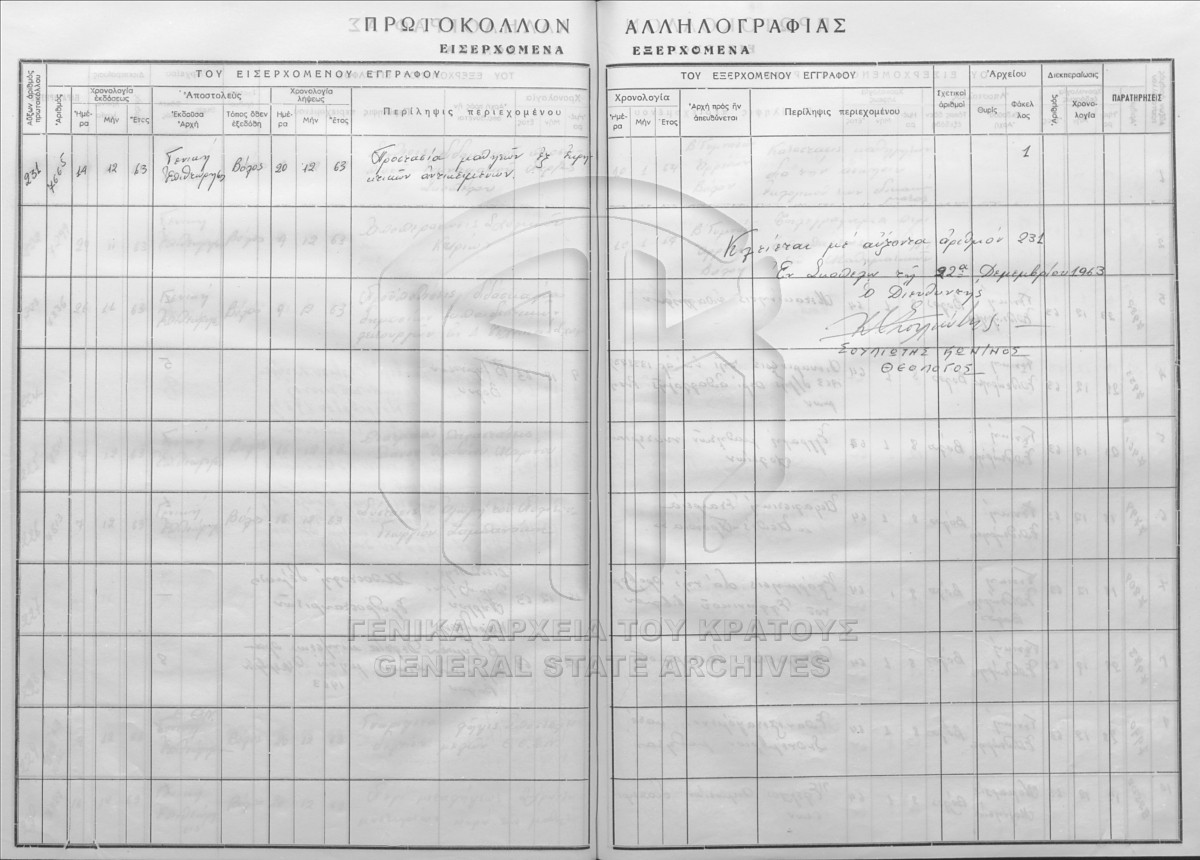 ΠΡΩΤΟΚΟΛΛΟΝ ΑΛΛΗΛΟΓΡΑΦΙΑΣ
ΕΙΣΕΡΧΟΜΕΝΑ ΕΞΕΡΧΟΜΕΝΑ
Αὔξων ἀριθμὸς πρωτοκόλλου
ΤΟΥ ΕΙΣΕΡΧΟΜΕΝΟΥ ΕΓΓΡΑΦΟΥ
Ἀριθμὸς
Χρονολογία ἐκδόσεως
Ἡμέρα Μὴν Ἔτος
Ἀποστολεὺς
Ἐκδοῦσα Ἀρχὴ
Τόπος ὅθεν ἐξεδόθη
Χρονολογία λήψεως
Ἡμέρα Μὴν Ἔτος
Περίληψις περιεχομένου
ΤΟΥ ΕΞΕΡΧΟΜΕΝΟΥ ΕΓΓΡΑΦΟΥ
Χρονολογία
Ἡμέρα Μὴν Ἔτος
Ἀρχὴ πρὸς ἣν ἀπευθύνεται
Περίληψις περιεχομένου
Σχετικοὶ ἀριθμοὶ
Ἀρχείου
Θυρὶς Φάκελλος
Διεκπεραίωσις
Ἀριθμὸς Χρονολογία
ΠΑΡΑΤΗΡΗΣΕΙΣ
231 14 12 63 Γενική Βόλος 20 12 63 Προστασία μαθητῶν ἐξ
1
Κλείεται μέ αὔξοντα ἀριθμόν 231
Ἐν Σκοπέλῳ τῇ 22ᾳ Δεκεμβρίου 1963
Ὁ Διευθυντής
ΣΟΥΛΙΩΤΗΣ ΚΩΝ/ΝΟΣ
ΘΕΟΛΟΓΟΣ
ΓΕΝΙΚΑ ΑΡΧΕΙΑ ΤΟΥ ΚΡΑΤΟΥΣ
GENERAL STATE ARCHIVES